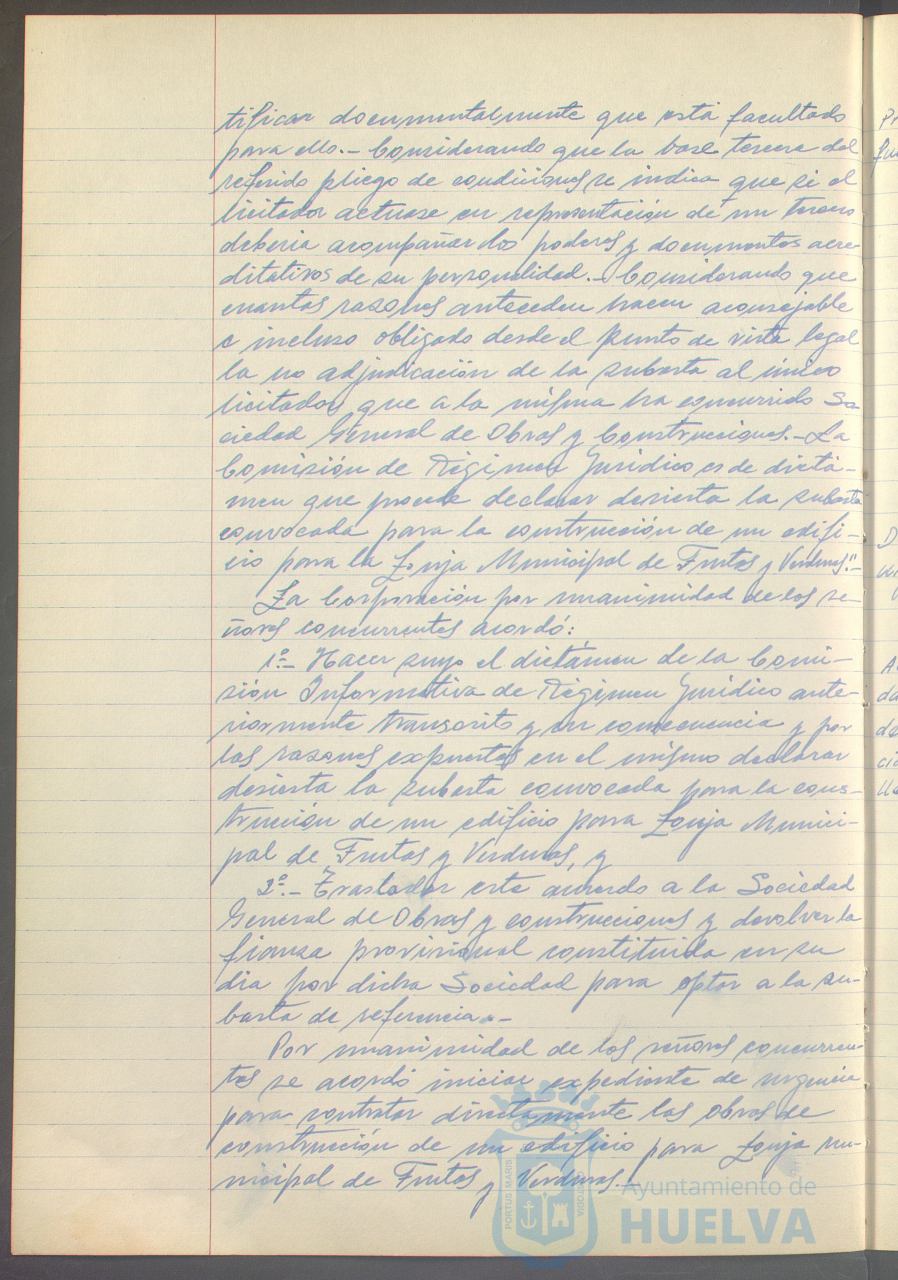 tificar documentalmente que está facultado
para ello.- Considerando que la base tercera del
referido pliego de condiciones se indica que si el
licitador actuase en representación de un tercero
deberia acompañar los poderes y documentos acre-
ditativos de su personalidad.- Considerando que
cuantas razones anteceden hacen aconsejable
e incluso obligado desde el punto de vista legal
la no adjudicación de la subasta al único
licitador que a la misma ha concurrido So-
ciedad General de Obras y Construcciones.- La
Comisión de Régimen Jurídico es de dictá-
men que procede declarar desierta la subasta
convocada para la construcción de un edifi-
cio para la Lonja Municipal de Frutas y Verduras."-
La Corporación por unanimidad de los se-
ñores concurrentes acordó:
1º.- Hacer suyo el dictámen de la Comi-
sión Informativa de Régimen Jurídico ante-
riormente transcrito y en consecuencia y por
las razones expuestas en el mismo declarar
desierta la subasta convocada para la cons-
trucción de un edificio para Lonja Munici-
pal de Frutas y Verduras, y
2º.- Trasladar este acuerdo a la Sociedad
General de Obras y construcciones y devolver la
fianza provisional constituida en su
dia por dicha Sociedad para optar a la su-
basta de referencia.-
Por unanimidad de los señores concurren-
tes se acordó iniciar expediente de urgencia
para contratar directamente las obras de
construcción de un edificio para Lonja mu-
nicipal de Frutas y Verduras.-
PORTUS MARIS
Ayuntamiento de
HUELVA